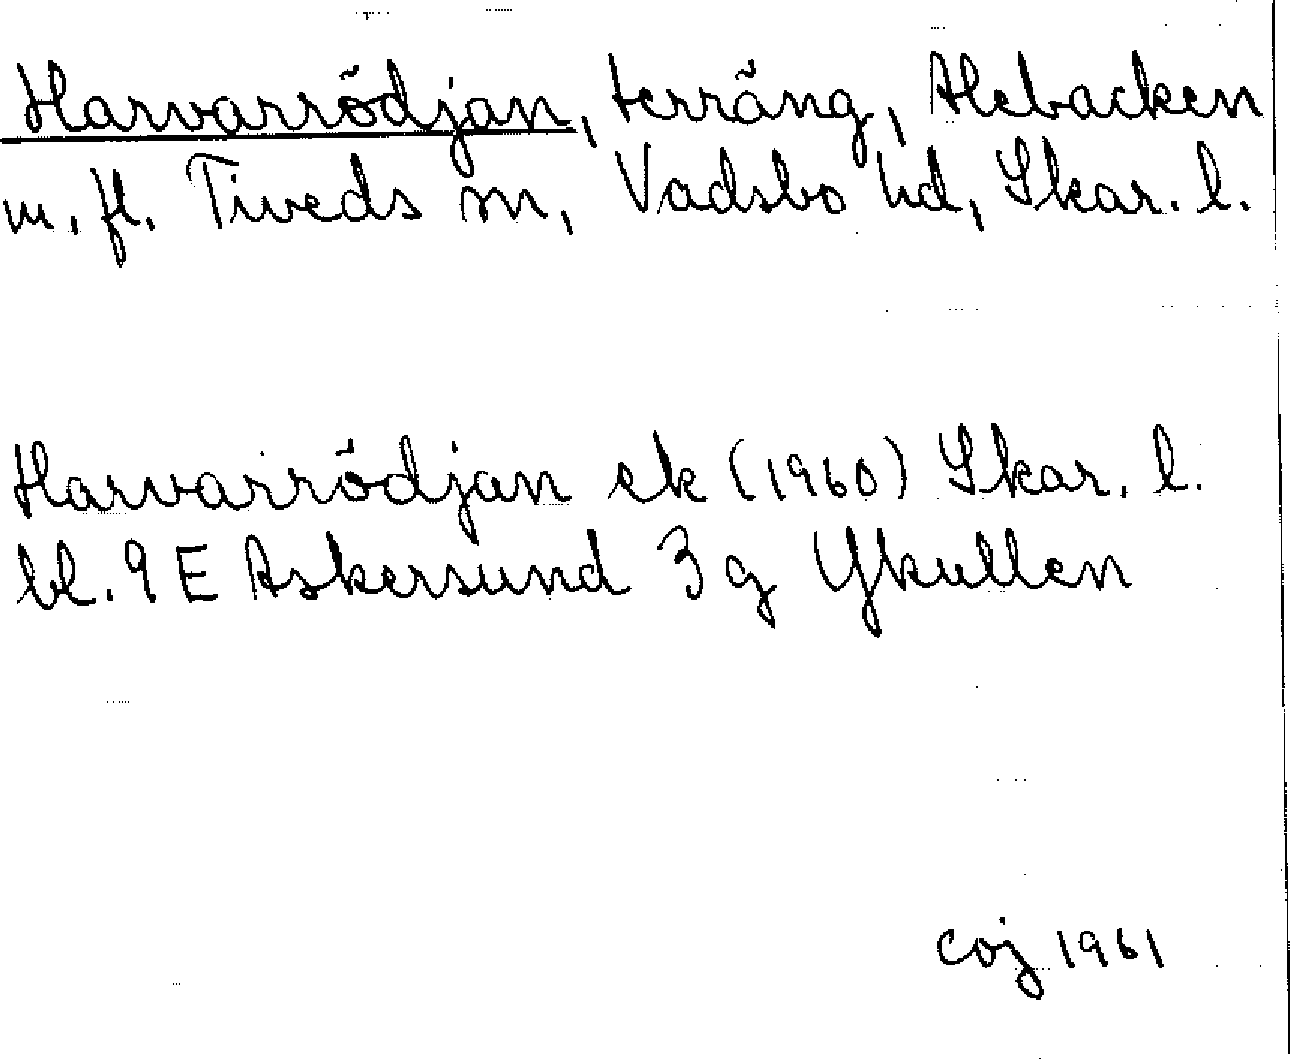 Harvarrödjan, terräng, Alebacken
m. fl. Tiveds sn, Vadsbo hd, Skar. l.
Harvarrödjan ek (1960) Skar. l.
bl. 9 E Askersund 3 g Ykullen
coj 1961